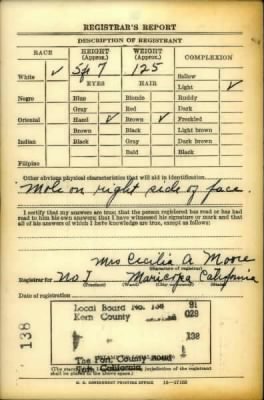 REGISTRAR'S REPORT
DESCRIPTION OF REGISTRANT
RACE HEIGHT (Approx.) WEIGHT (Approx.) COMPLEXION
White ✓ 5ft 7 125 Sallow
EYES HAIR Light ✓
Negro Blue Blonde Ruddy
Gray Red Dark
Oriental Hazel ✓ Brown ✓ Freckled
Brown Black Light brown
Indian Black Gray Dark brown
Bald Black
Filipino
Other obvious physical characteristics that will aid in identification
Mole on right side of face.
I certify that my answers are true; that the person registered has read or has had
read to him his own answers; that I have witnessed his signature or mark and that
all of his answers of which I have knowledge are true, except as follows:
Mrs Cecilia A. Moore
(Signature of registrar)
Registrar for No 1 Maricopa California
(Precinct) (Ward)
Date of registration
Local Board No. 138 91
Kern County 029
138
138
The Fort County Road
Taft California
of the registrant shall be
placed in the above space.)
U. S. GOVERNMENT PRINTING OFFICE 16—17105